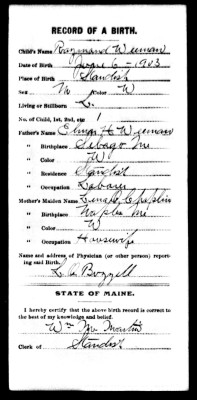 RECORD OF A BIRTH.
Child's Name Raymond Wieman
Date of Birth June 6 - 1903
Place of Birth Standish
Sex M Color W
Living or Stillborn L.
No. of Child, 1st, 2nd, etc. 1
Father's Name Elmer H. Wieman
" Birthplace Sebago Me
" Color W
" Residence Standish
" Occupation Laborer
Mother's Maiden Name Lena R. Chaplin
" Birthplace Naples Me.
" Color W
" Occupation Housewife
Name and address of Physician (or other person) reporting said Birth.
L. C. Buzzell
STATE OF MAINE.
I hereby certify that the above birth record is correct to
the best of my knowledge and belief.
Wm
Clerk of Standish